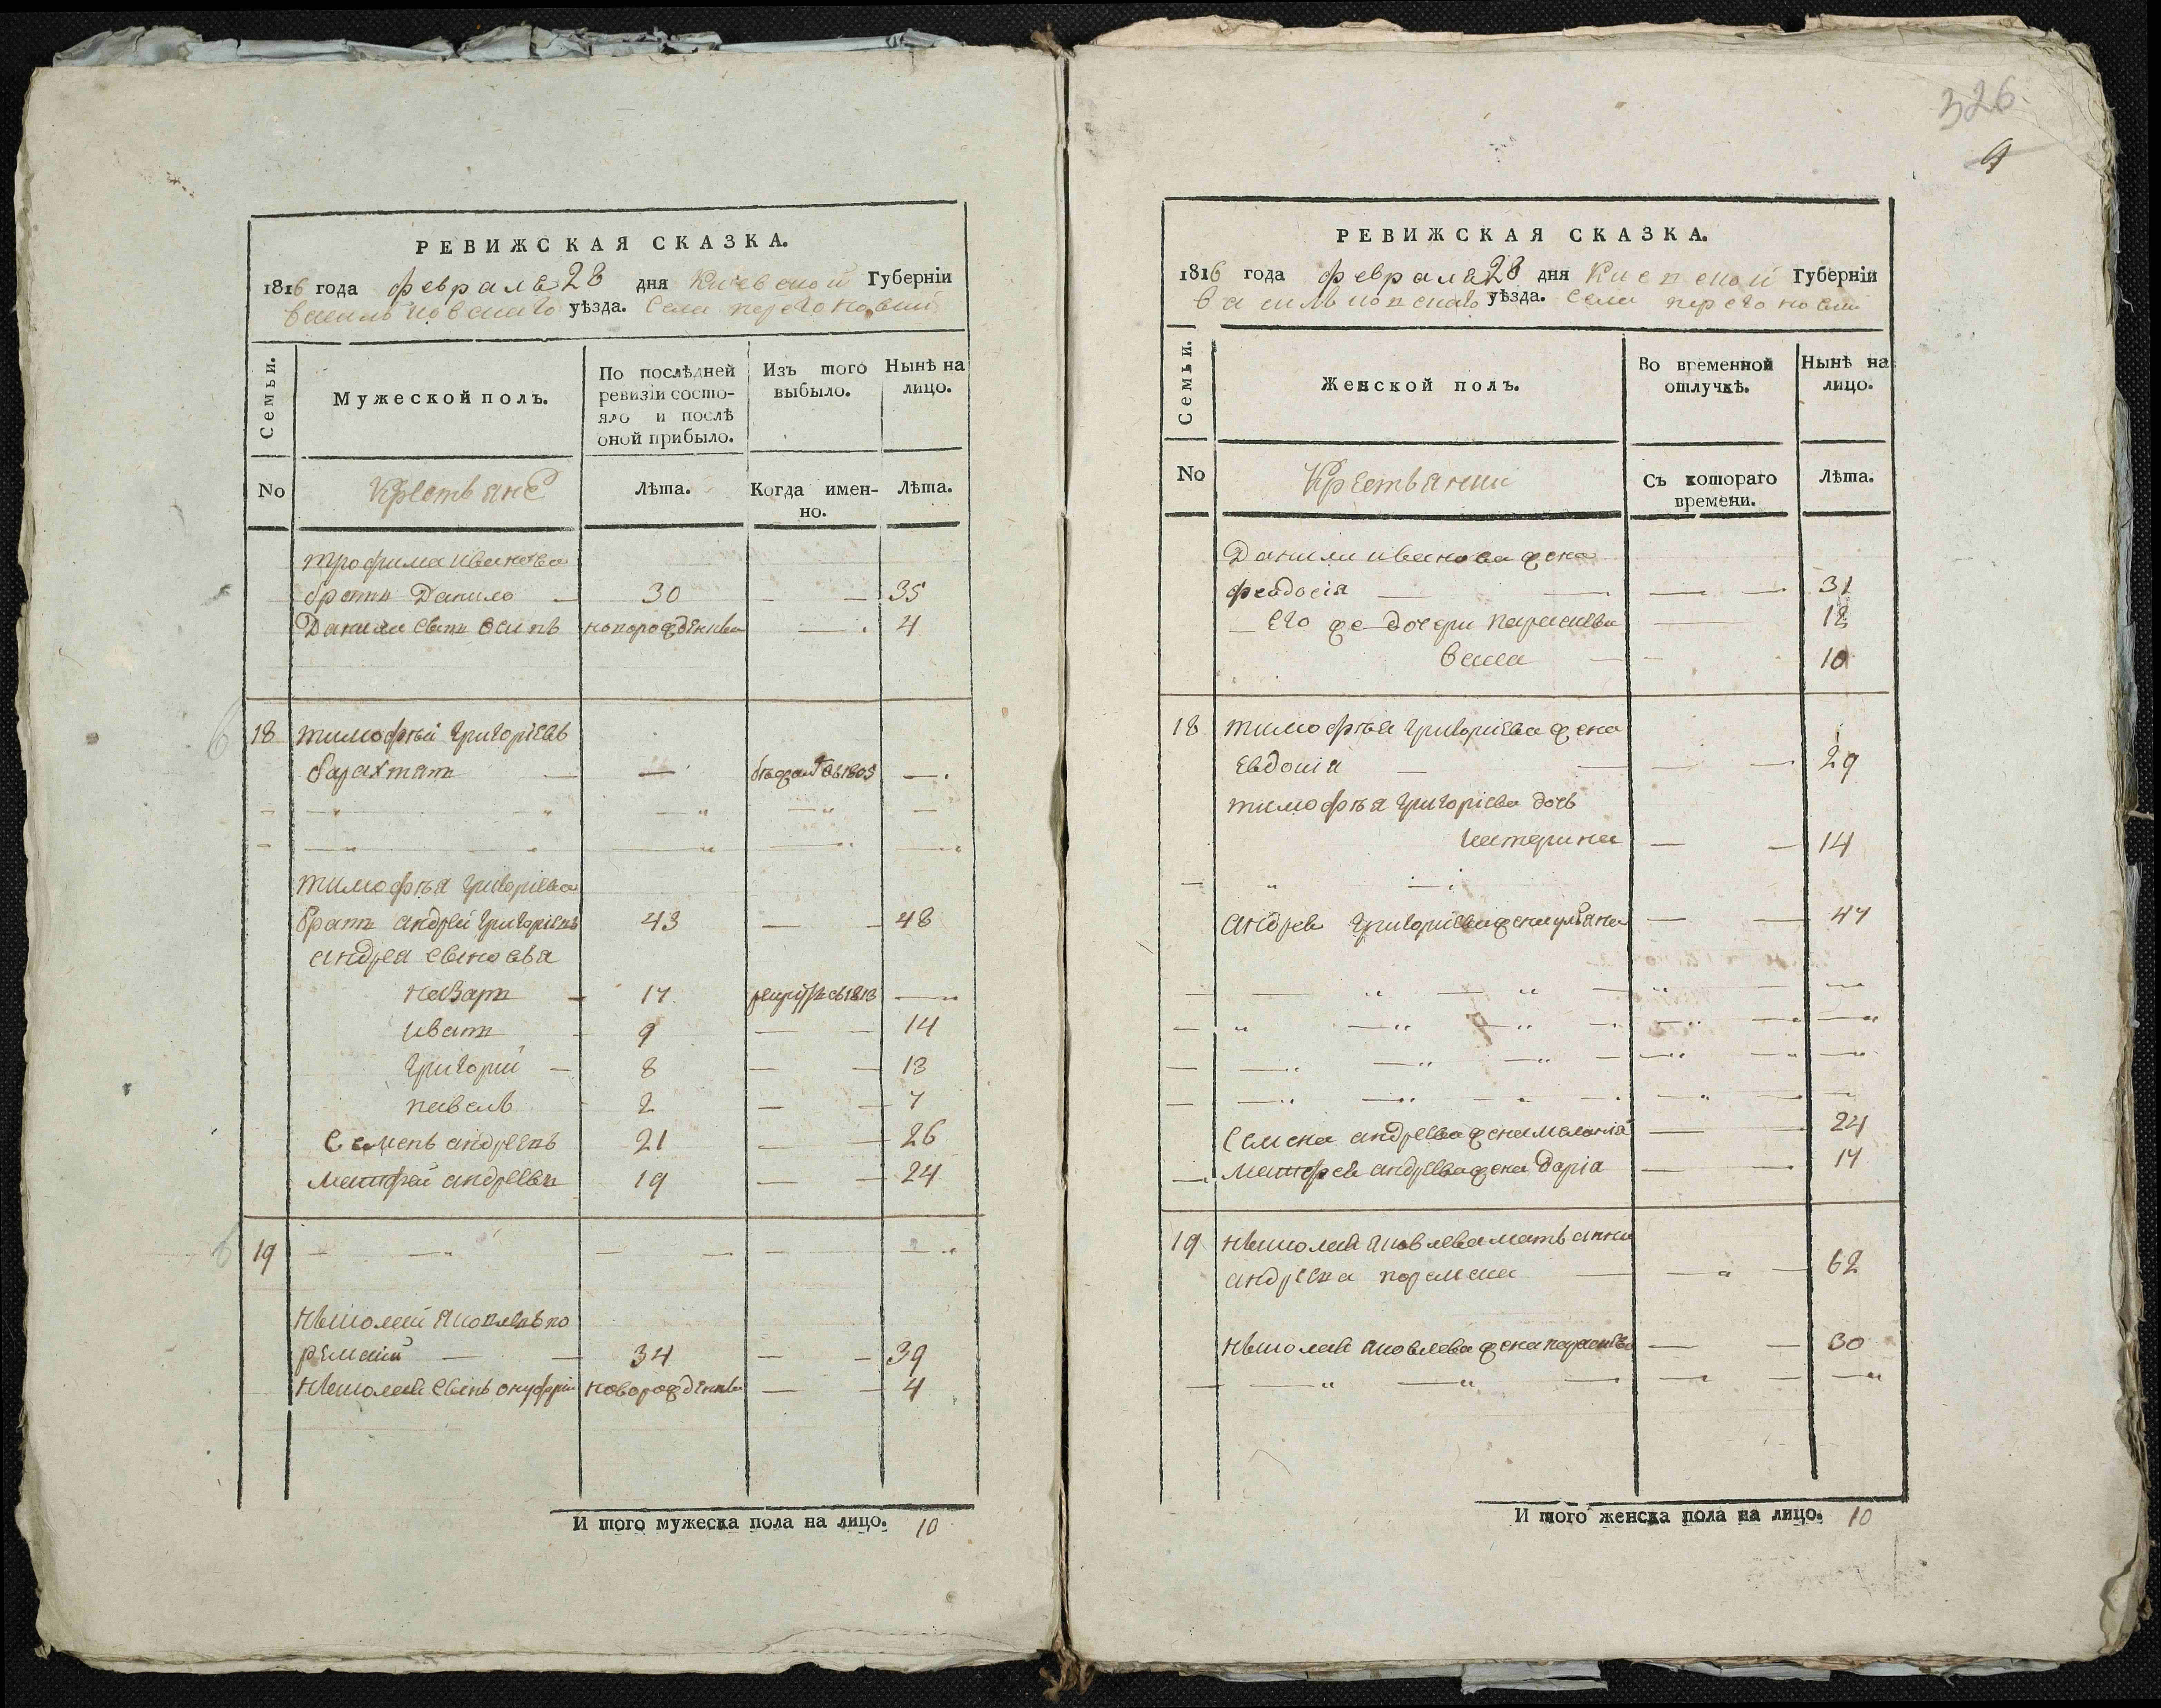 РЕВИЖСКАЯ СКАЗКА.
1816 года февраля 28 дня Киевской Губернiи
васильковскаго уѣзда. Села
Семьи.
Мужеской полъ.
По послѣдней
ревизiи состо-
яло и послѣ
оной прибыло.
Изъ того
выбыло.
Нынѣ на
лицо.
No
Крестьяне
Лѣта.
Когда имен-
но.
Лѣта.
трофима иванова
братъ Данило 30 35
Данили сынъ осипъ новорожденны 4
18 тимофѣй григорiевъ
барахтянъ бѣжалъ въ 1805
тимофѣя григорiева
братъ андрей григорiевъ 43 48
андрея сыновья
назаръ 17 рекрутъ въ 1813
иванъ 9 14
григорiй 8 13
павелъ 2 7
Семенъ андреевъ 21 26
матфей андреевъ 19 24
19
яковлевъ по
34 39
сынъ онуфрiй новорожденны 4
И того мужеска пола на лицо. 10
326
9
РЕВИЖСКАЯ СКАЗКА.
1816 года февраля 28 дня Киевской Губернiи
васильковскаго уѣзда. Села
Семьи.
Женской полъ.
Во временной
отлучкѣ.
Нынѣ на
лицо.
No
Крестьянки
Съ котораго
времени.
Лѣта.
Данили иванова жена
феодосiя 31
Его же дочери параскева 12
васса 10
18 тимофѣя григорiева жена
Евдокiя 29
тимофѣя григорiева дочь
катерина 14
андрея григорiева жена улiяна 47
Семена андреева жена маланiя 24
матфея андреева жена дарiя 17
19 яковлева мать анна
андреева 62
яковлева жена параскева 30
И того женска пола на лицо. 10